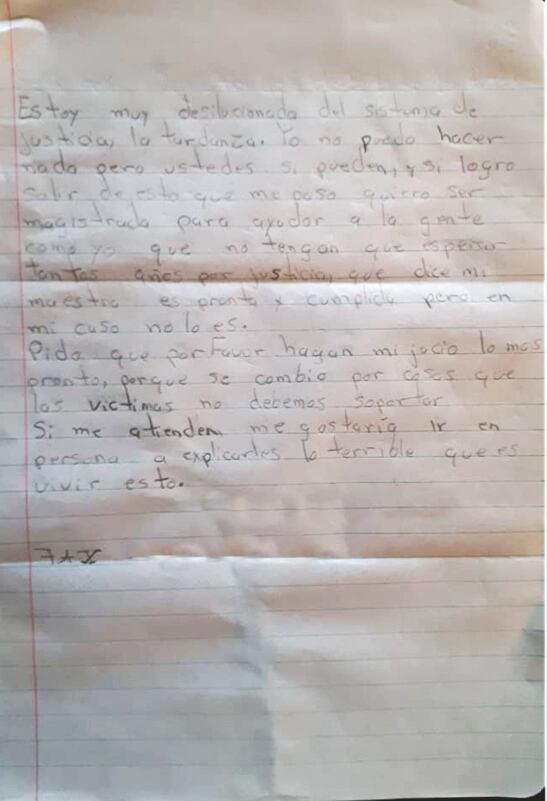 Estoy muy desilucionada del sistema de
justicia, la tardanza. Yo no puedo hacer
nada pero ustedes si pueden, y si logro
salir de esto que me paso quiero ser
magistrada para ayudar a la gente
como yo que no tengan que esperar
tantos años por justicia, que dice mi
maestra es pronta y cumplida pero en
mi caso no lo es.
Pido que por Favor hagan mi jucio lo mas
pronto, porque se cambio por cosas que
las victimas no debemos soportar
Si me atienden me gustaría ir en
persona a explicarles lo terrible que es
vivir esto.